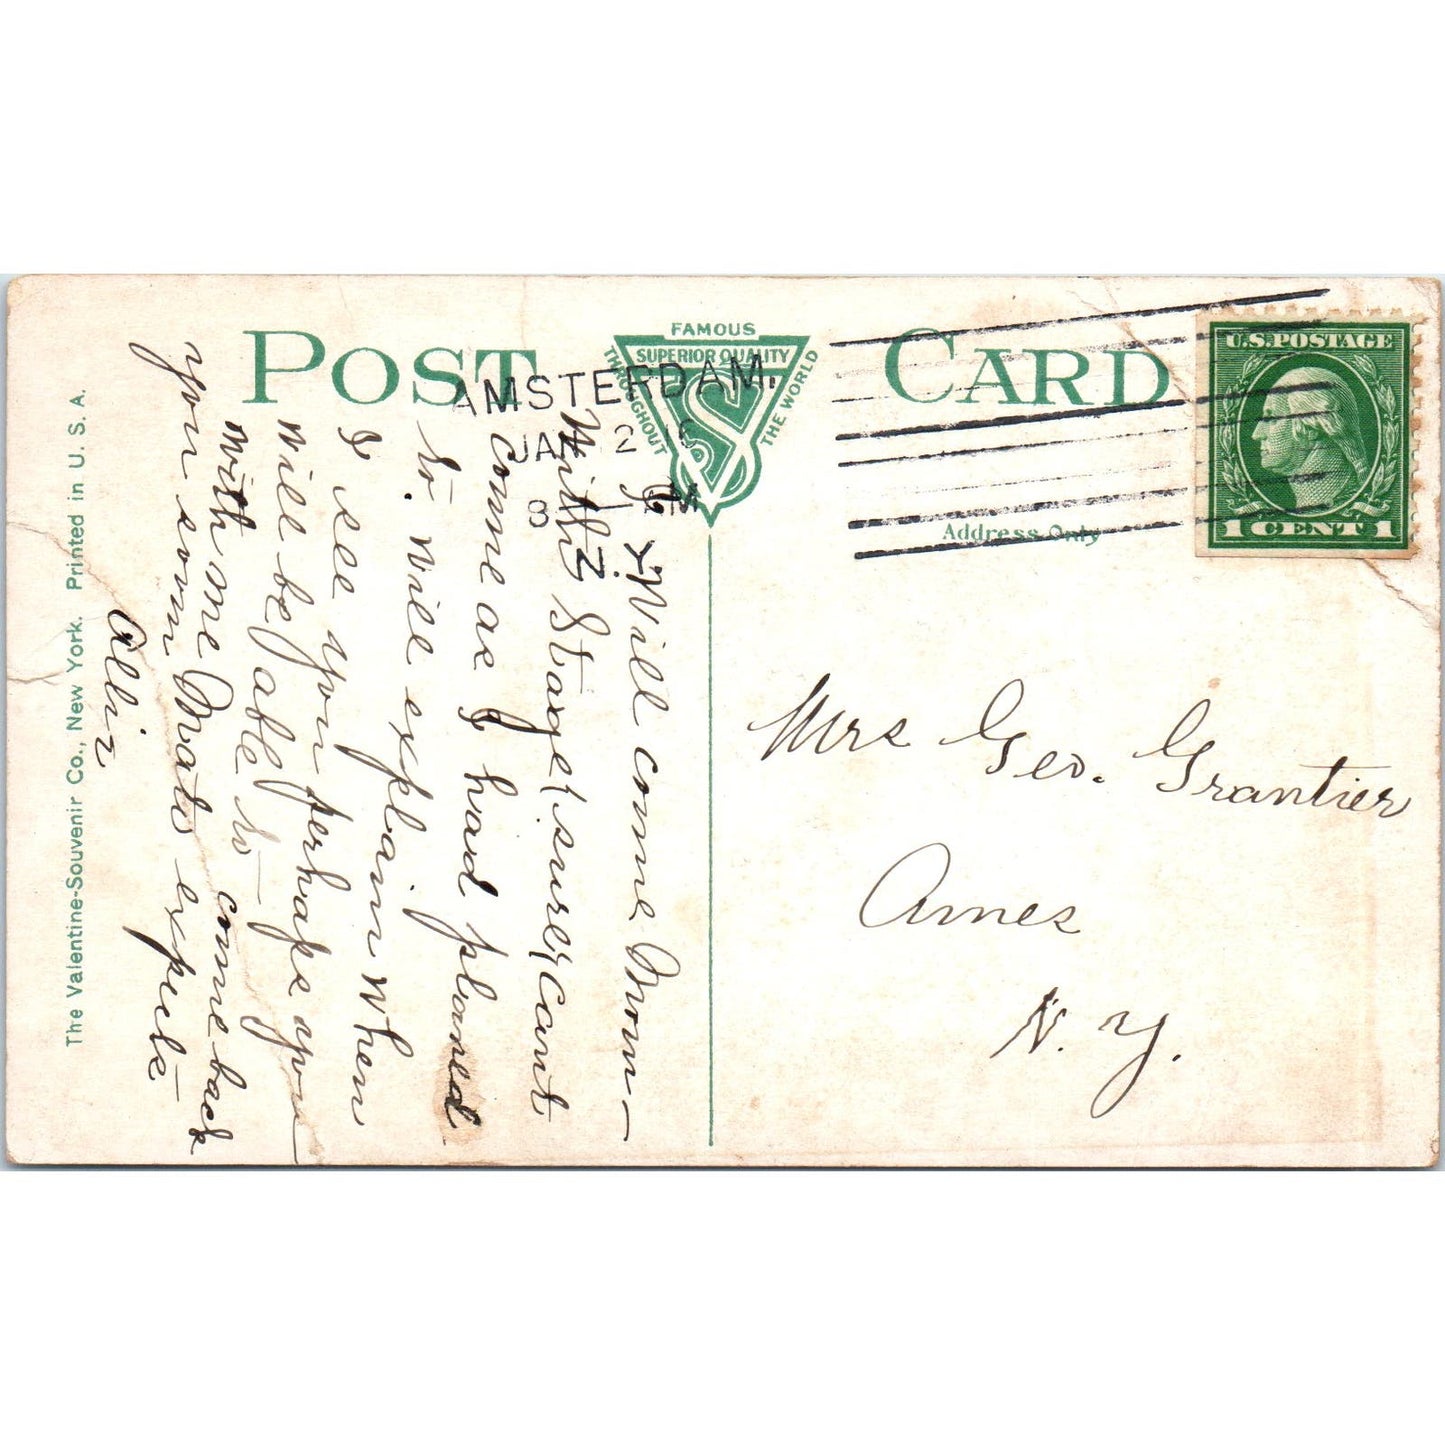 POST CARD
FAMOUS
SUPERIOR QUALITY
THROUGHOUT
THE WORLD
VS
AMSTERDAM.
JAN 2
8 AM
U.S.POSTAGE
1 CENT 1
Address Only
Will come Mon-
With Stage (sure) cant
come as I had planed
so. will explain when
I see you perhaps you
will be able to come back
with me Mato expects
you soon
Mrs Geo. Grantier
Ames
N. Y.
The Valentine-Souvenir Co., New York. Printed in U. S. A.